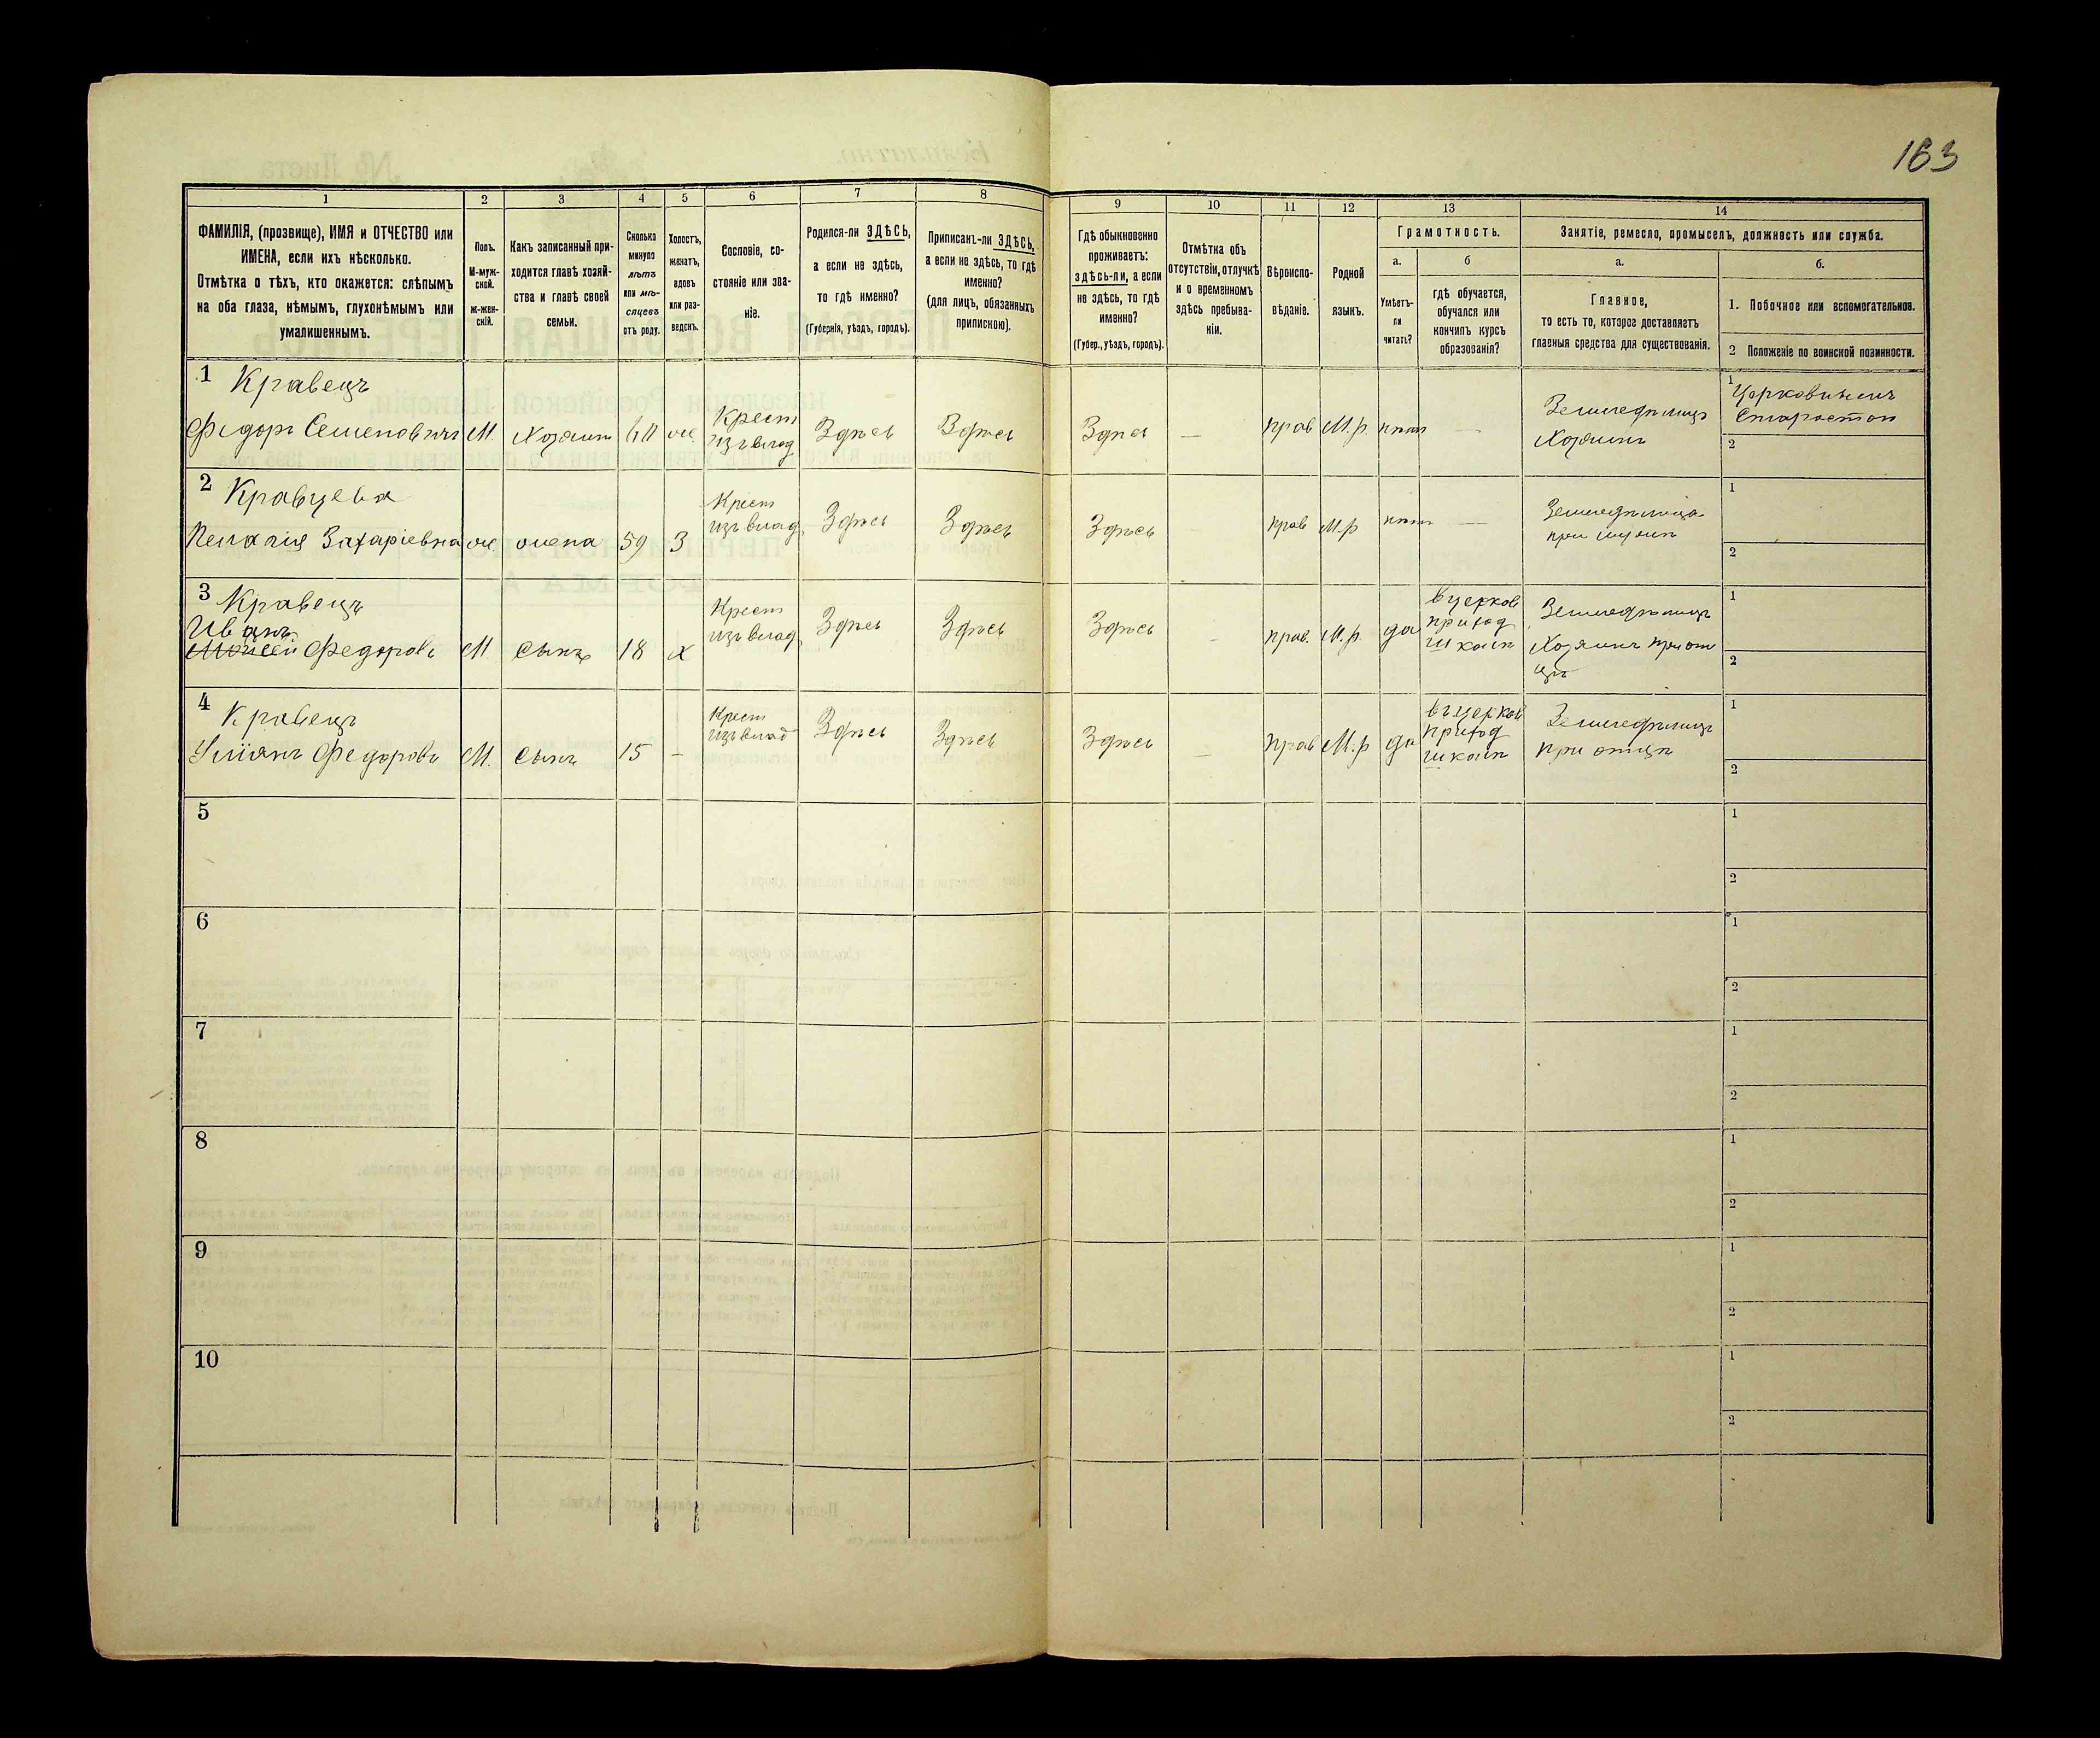 163
1 2 3 4 5 6 7 8 9 10 11 12 13 14
ФАМИЛІЯ, (прозвище), ИМЯ и ОТЧЕСТВО или
ИМЕНА, если ихъ нѣсколько.
Отмѣтка о тѣхъ, кто окажется: слѣпымъ
на оба глаза, нѣмымъ, глухонѣмымъ или
умалишеннымъ.
Полъ.
М-муж-
ской.
ж-жен-
скій.
Какъ записанный при-
ходится главѣ хозяй-
ства и главѣ своей
семьи.
Сколько
минуло
лѣтъ
или мѣ-
сяцевъ
отъ роду.
Холостъ,
женатъ,
вдовъ
или раз-
веденъ.
Сословіе, со-
стояніе или зва-
ніе.
Родился-ли ЗДѢСЬ,
а если не здѣсь,
то гдѣ именно?
(Губернія, уѣздъ, городъ).
Приписанъ-ли ЗДѢСЬ,
а если не здѣсь, то гдѣ
именно?
(для лицъ, обязанныхъ
припискою).
Гдѣ обыкновенно
проживаетъ:
здѣсь-ли, а если
не здѣсь, то гдѣ
именно?
(Губер., уѣздъ, городъ).
Отмѣтка объ
отсутствіи, отлучкѣ
и о временномъ
здѣсь пребыва-
ніи.
Вѣроиспо-
вѣданіе.
Родной
языкъ.
Грамотность.
а.
Умѣетъ-
ли
читать?
б
гдѣ обучается,
обучался или
кончилъ курсъ
образованія?
Занятіе, ремесло, промыселъ, должность или служба.
а.
Главное,
то есть то, которое доставляетъ
главныя средства для существованія.
б.
1. Побочное или вспомогательное.
2 Положеніе по воинской повинности.
1 Кравецъ
Федоръ Семеновичъ М. Хозяинъ 60 ж. Крест изъ влад Здѣсь Здѣсь Здѣсь — прав М.р. нѣтъ — Земледѣлецъ Хозяинъ
1 Церковнымъ
Старостой
2
2 Кравцева
Пелагія Захаріевна ж жена 59 З Крест изъ влад Здѣсь Здѣсь Здѣсь прав М.р нѣтъ — Земледѣлица при мужѣ
1
2
3 Кравецъ
Иванъ
Моисей Федоровъ М сынъ 18 х Крест изъ влад Здѣсь Здѣсь Здѣсь - прав. М.р. да в церков приход школѣ Земледѣлецъ Хозяинъ при отцѣ
1
2
4 Кравецъ
Уліянъ Федоровъ М. сынъ 15 - Крест изъ влад Здѣсь Здѣсь Здѣсь — прав М.р да въ церков приход школѣ Земледѣлецъ при отцѣ
1
2
5
1
2
6
1
2
7
1
2
8
1
2
9
1
2
10
1
2